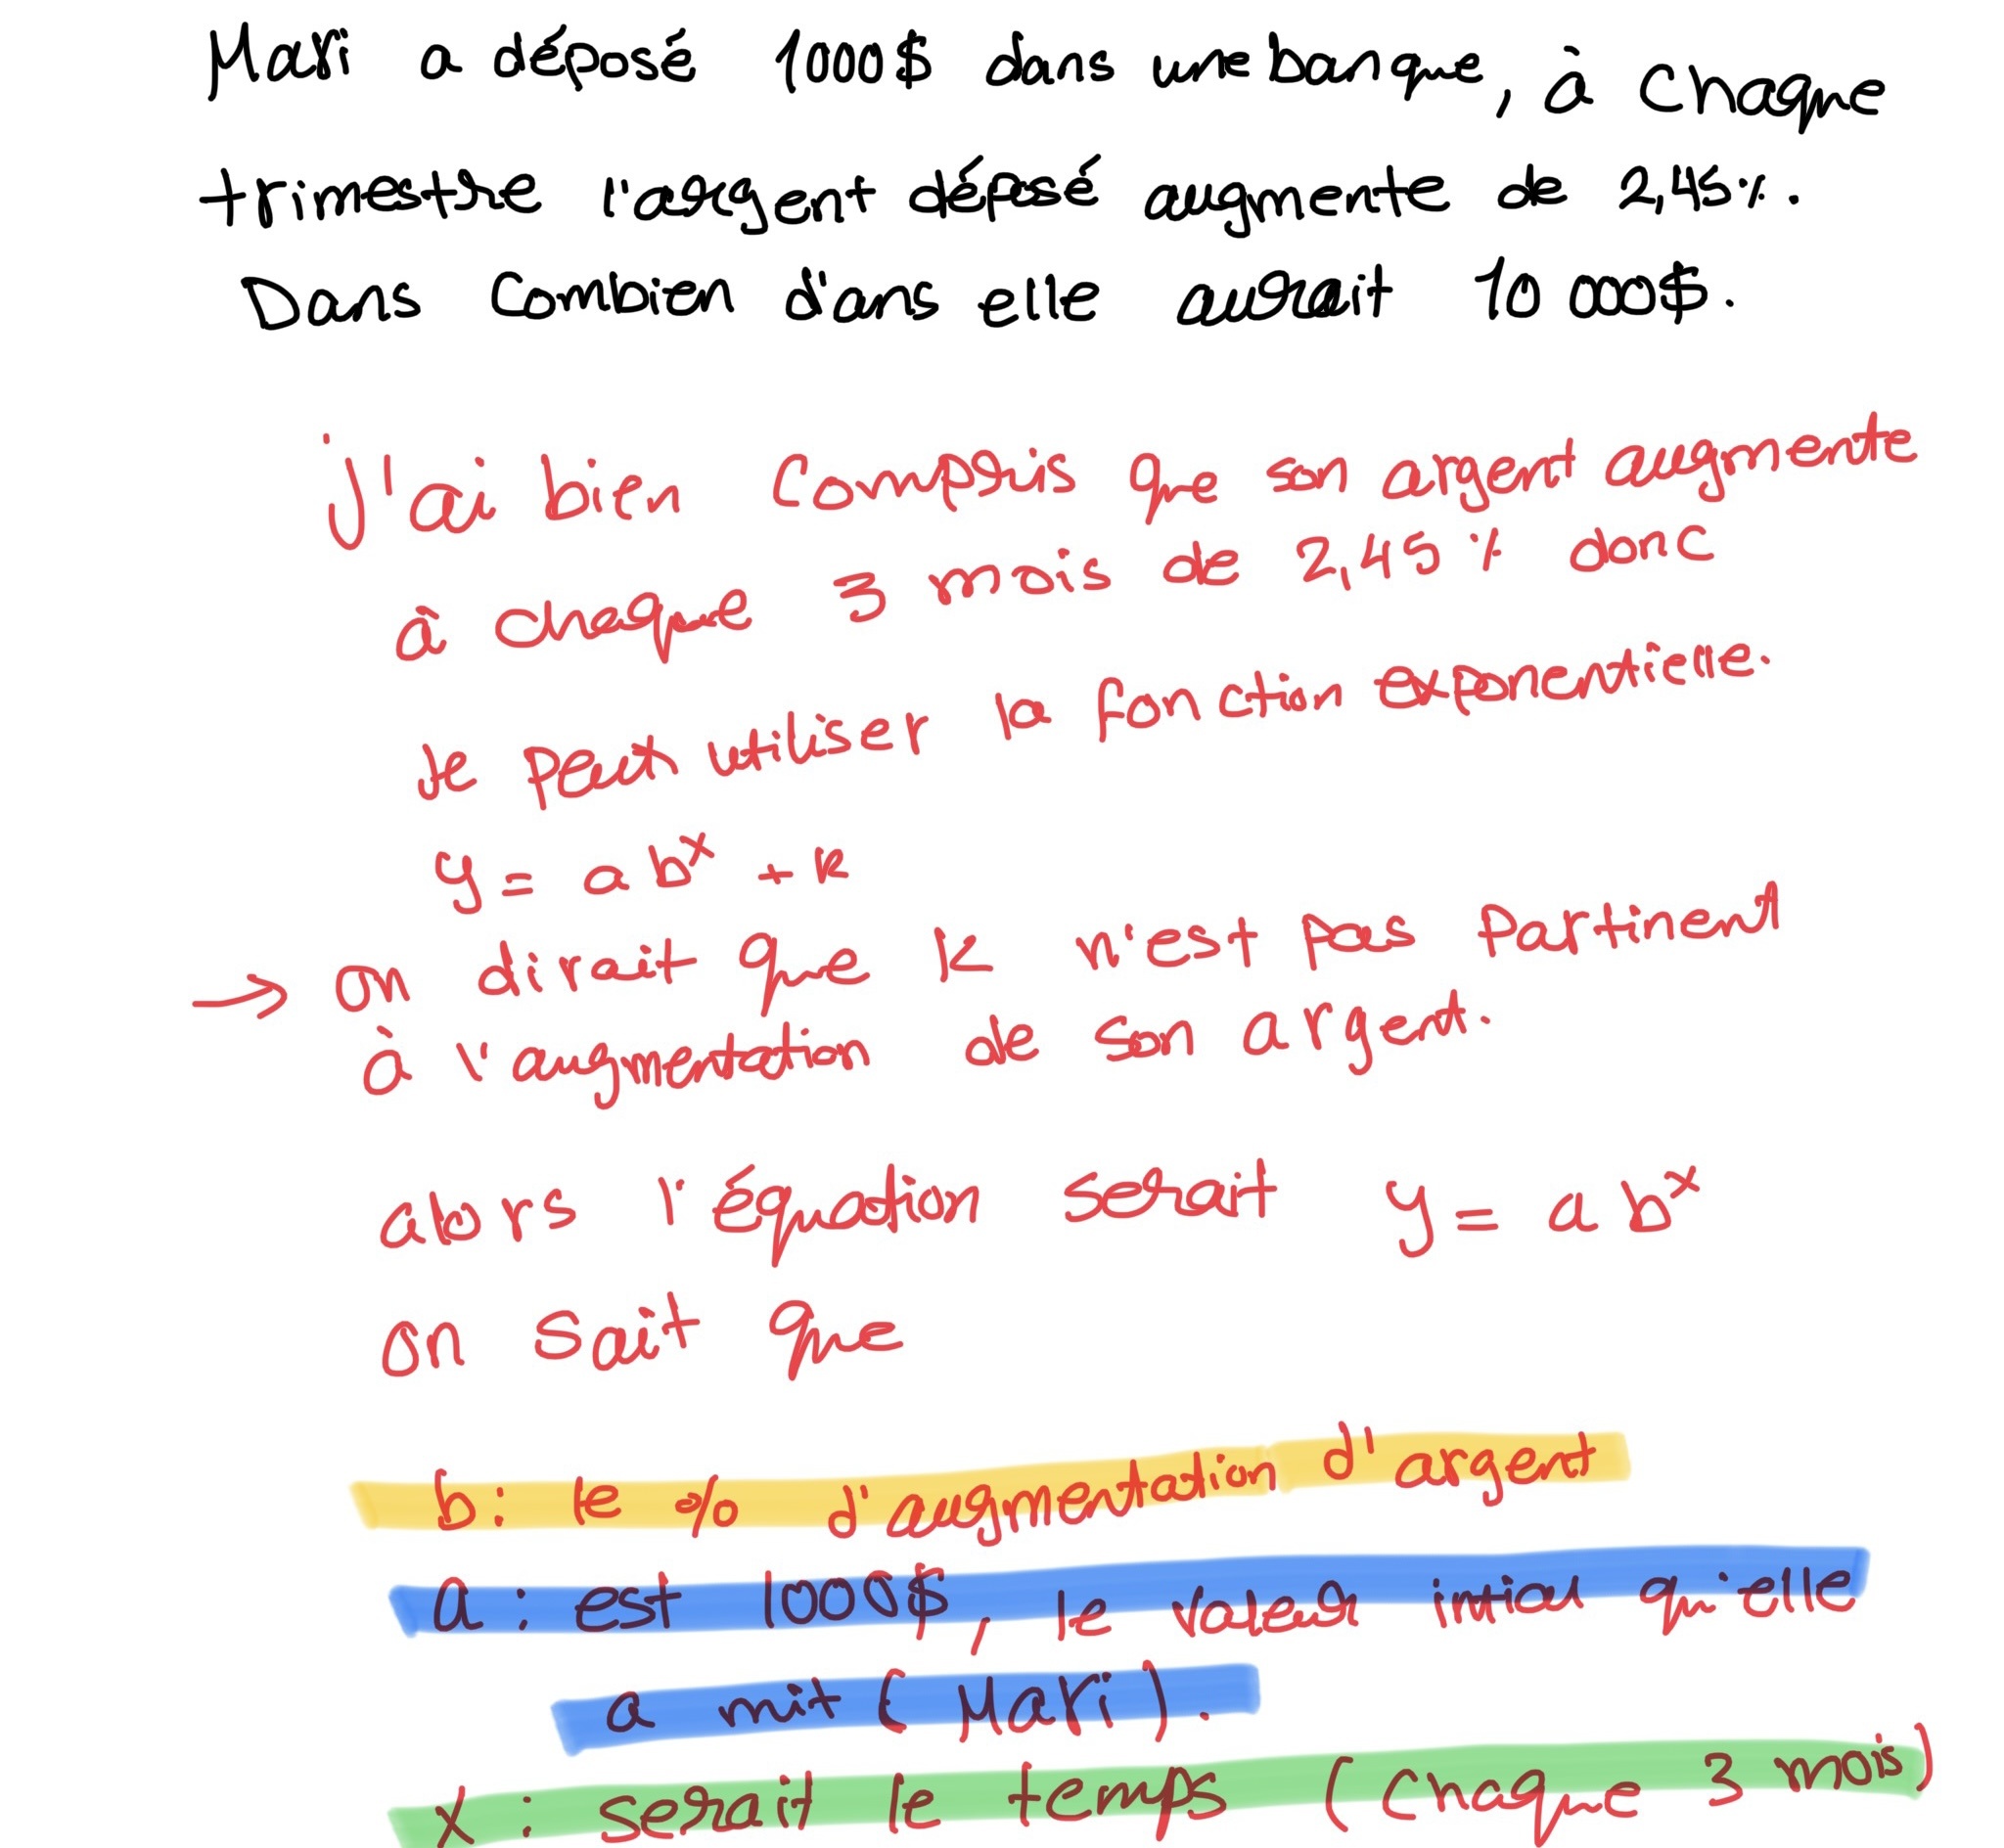 Mari a déposé 1000$ dans une banque, à chaque
trimestre l'argent déposé augmente de 2,45%.
Dans combien d'ans elle aurait 10 000$.
J'ai bien compris que son argent augmente
à chaque 3 mois de 2,45 % donc
Je peux utiliser la fonction exponentielle.
y = a b^x + k
→ on dirait que k n'est pas partinent
à l'augmentation de son argent.
alors l'équation serait y = a b^x
on sait que
b: le % d'augmentation d'argent
a: est 1000$, le valeur intial qu'elle
a mit (Mari).
x: serait le temps (chaque 3 mois)